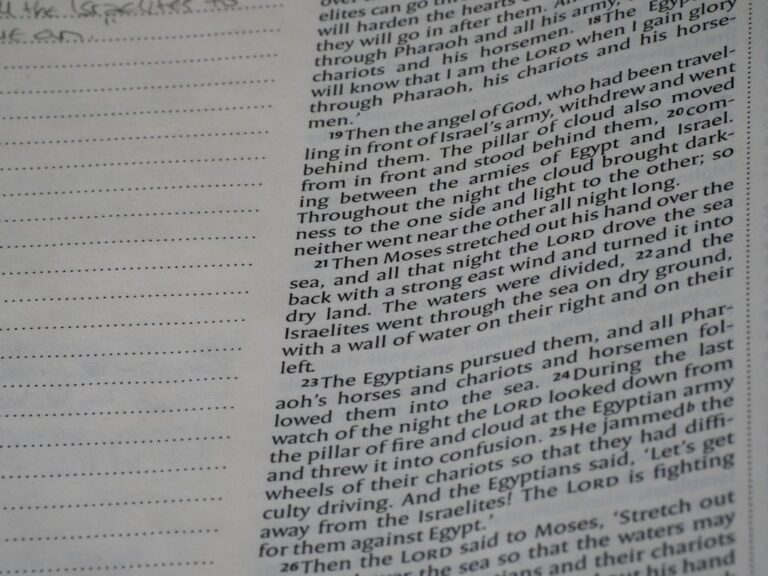 the Israelites to
elites can go
will harden the hearts
they will go in after them.
through Pharaoh and all his army,
chariots and his horsemen. 18The
will know that I am the LORD when I gain glory
through Pharaoh, his chariots and his horse-
men.’
19Then the angel of God, who had been travel-
ling in front of Israel’s army, withdrew and went
behind them. The pillar of cloud also moved
from in front and stood behind them, 20com-
ing between the armies of Egypt and Israel.
Throughout the night the cloud brought dark-
ness to the one side and light to the other; so
neither went near the other all night long.
21Then Moses stretched out his hand over the
sea, and all that night the LORD drove the sea
back with a strong east wind and turned it into
dry land. The waters were divided, 22and the
Israelites went through the sea on dry ground,
with a wall of water on their right and on their
left.
23The Egyptians pursued them, and all Phar-
aoh’s horses and chariots and horsemen fol-
lowed them into the sea. 24During the last
watch of the night the LORD looked down from
the pillar of fire and cloud at the Egyptian army
and threw it into confusion. 25He jammedb the
wheels of their chariots so that they had diffi-
culty driving. And the Egyptians said, ‘Let’s get
away from the Israelites! The LORD is fighting
for them against Egypt.’
26Then the LORD said to Moses, ‘Stretch out
over the sea so that the waters may
and their chariots
his hand